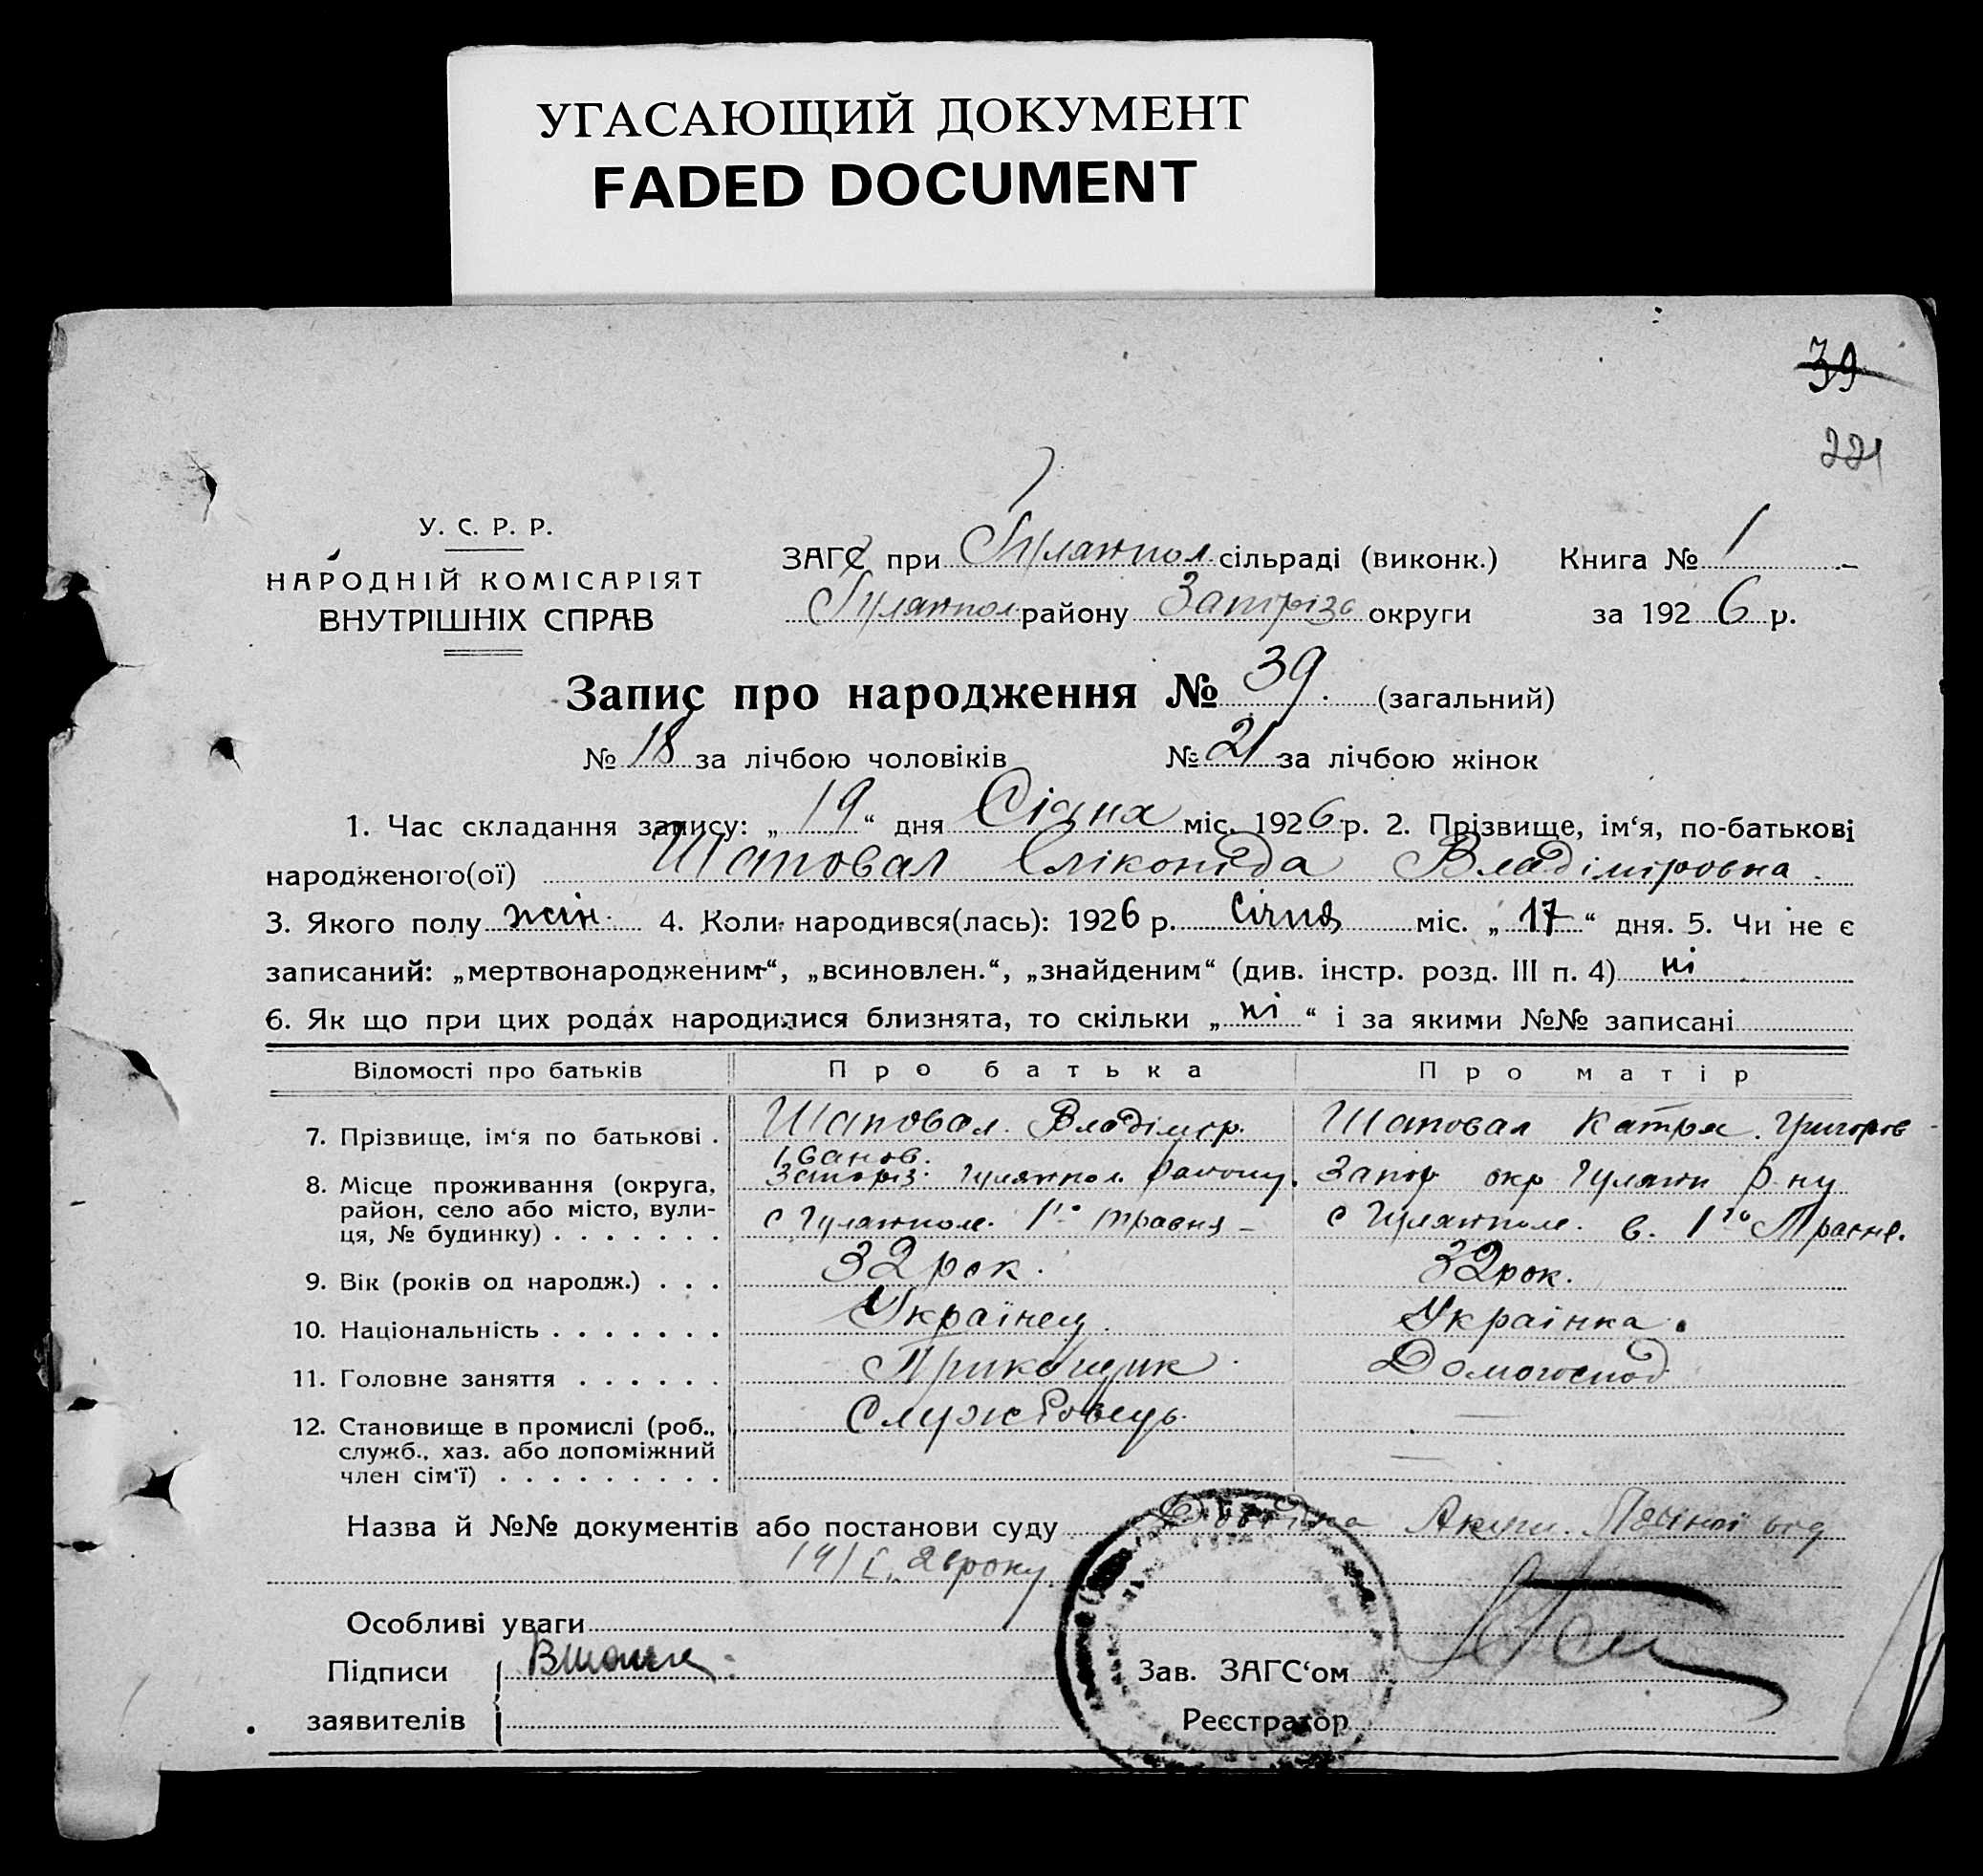 УГАСАЮЩИЙ ДОКУМЕНТ
FADED DOCUMENT
39
221
У. С. Р. Р.
НАРОДНІЙ КОМІСАРІЯТ
ВНУТРІШНІХ СПРАВ
ЗАГС при Гуляйпол сільраді (виконк.) Книга № 1
Гуляйпол району Запоріз округи за 1926 р.
Запис про народження № 39. (загальний)
№ 18 за лічбою чоловіків № 21 за лічбою жінок
1. Час складання запису: „19“ дня Січня міс. 1926 р. 2. Прізвище, ім‘я, по-батькові
народженого(ої) Шаповал Владіміровна
3. Якого полу жін. 4. Коли народився(лась): 1926 р. Січня міс. „17“ дня. 5. Чи не є
записаний: „мертвонародженим“, „всиновлен.“, „знайденим“ (див. інстр. розд. III п. 4) ні
6. Як що при цих родах народилися близнята, то скільки „ні“ і за якими №№ записані
Відомості про батьків Про батька Про матір
7. Прізвище, ім‘я по батькові . Шаповал Владімир. Іванов. Шаповал Катря. Григоров
8. Місце проживання (округа, Запоріз. Гуляйпол. району. Запор окр Гуляйп р-ну
район, село або місто, вули- с Гуляйполе. 1го травня с Гуляйполе. в. 1го Травне.
ця, № будинку) . . . . . . .
9. Вік (років од народж.) . . . 32 рок. 32 рок.
10. Національність . . . . . . . Українец. Украінка.
11. Головне заняття . . . . . . Прикащик Домогоспод
12. Становище в промислі (роб., Службовець.
служб., хаз. або допоміжний
член сім‘ї) . . . . . . . . .
Назва й №№ документів або постанови суду Довідка Акуш.
19/I. 26 року.
Особливі уваги
Підписи Зав. ЗАГС‘ом
заявителів Реєстратор